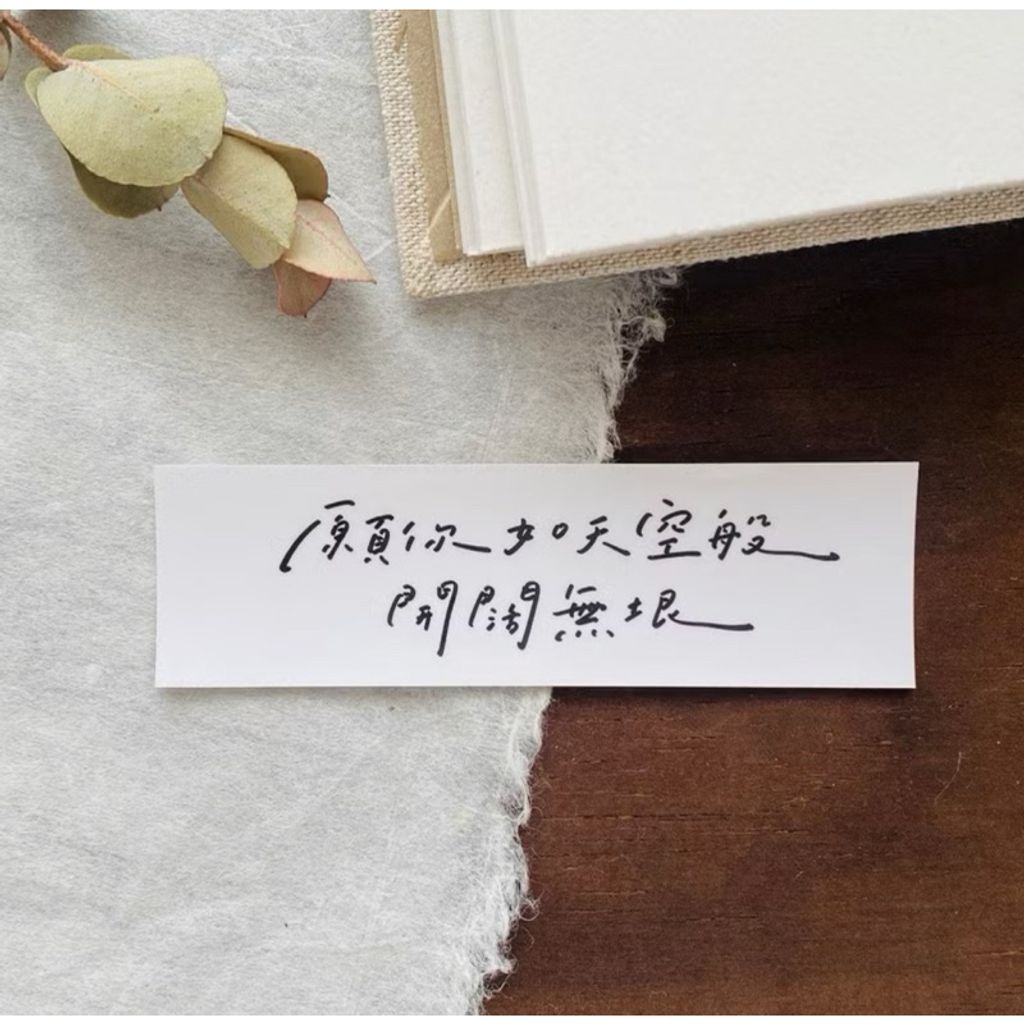 願你如天空般
開闊無垠